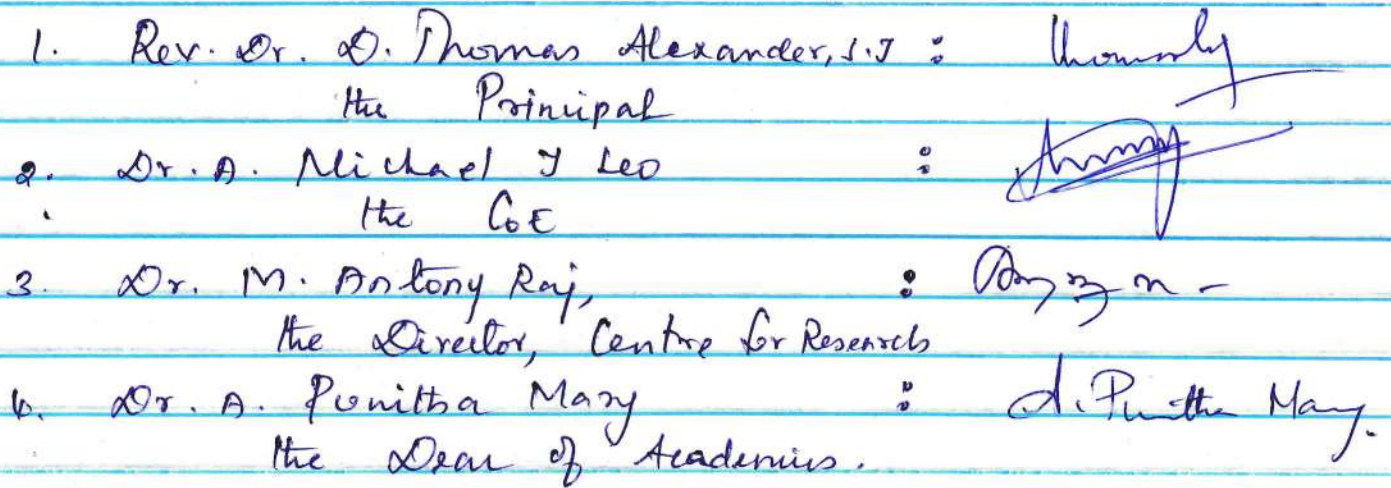 1. Rev. Dr. D. Thomas Alexander, S.J :
the Principal
2. Dr. A. Michael J Leo :
the CoE
3. Dr. M. Antony Raj, :
the Director, Centre for Research
4. Dr. A. Punitha Mary : A. Punitha Mary.
the Dean of Academics.